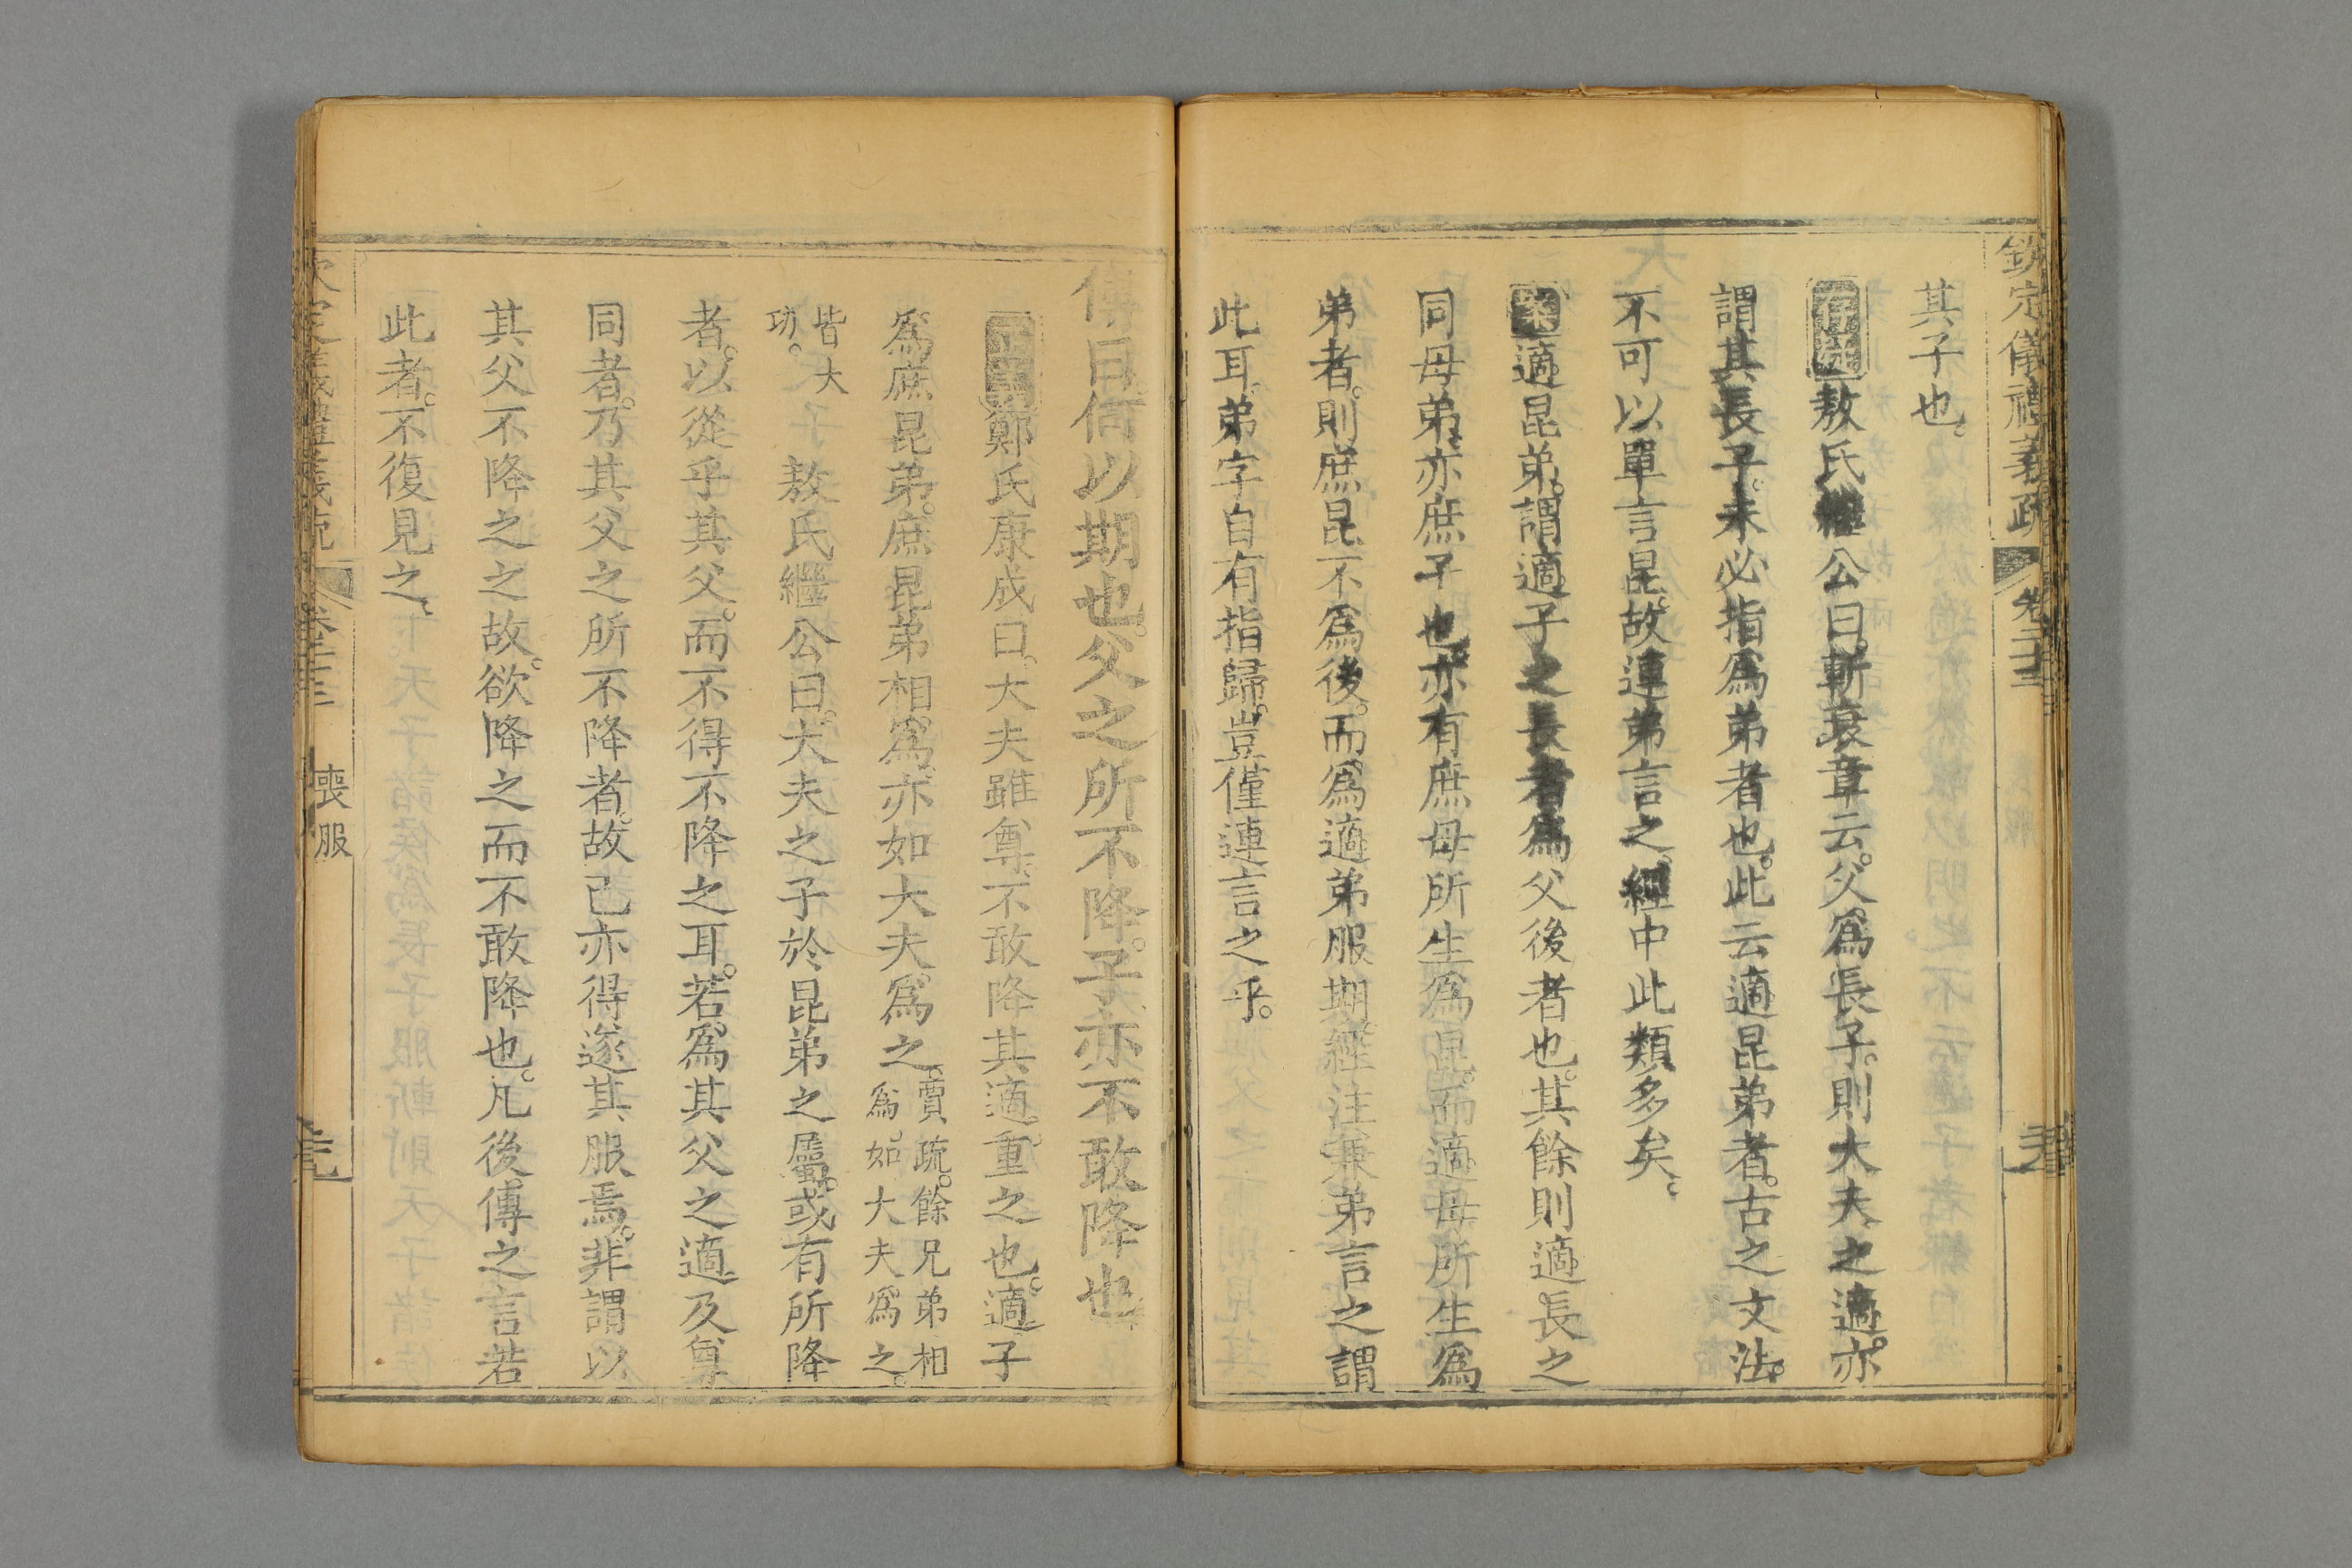 欽定儀禮義疏 卷二十三
其子也。
存疑敖氏繼公曰。斬衰章云。父爲長子。則大夫之適。亦
謂其長子。未必指爲弟者也。此云適昆弟者。古之文法。
不可以單言昆。故連弟言之。經中此類多矣。
案適昆弟。謂適子之長者爲父後者也。其餘則適長之
同母弟。亦庶子也。亦有庶母所生爲昆。而適母所生爲
弟者。則庶昆不爲後。而爲適弟服期。經注兼弟言之。謂
此耳。弟字自有指歸。豈僅連言之乎。
傳曰。何以期也。父之所不降。子亦不敢降也。
正義鄭氏康成曰。大夫雖尊。不敢降其適。重之也。適子
爲庶昆弟。庶昆弟相爲。亦如大夫爲之。賈疏。餘兄弟相
爲。如大夫爲之。
皆大
功。
敖氏繼公曰。大夫之子於昆弟之屬。或有所降
者。以從乎其父。而不得不降之耳。若爲其父之適及尊
同者。乃其父之所不降者。故己亦得遂其服焉。非謂以
其父不降之之故。欲降之而不敢降也。凡後傳之言若
此者。不復見之。
卷二十三 喪服